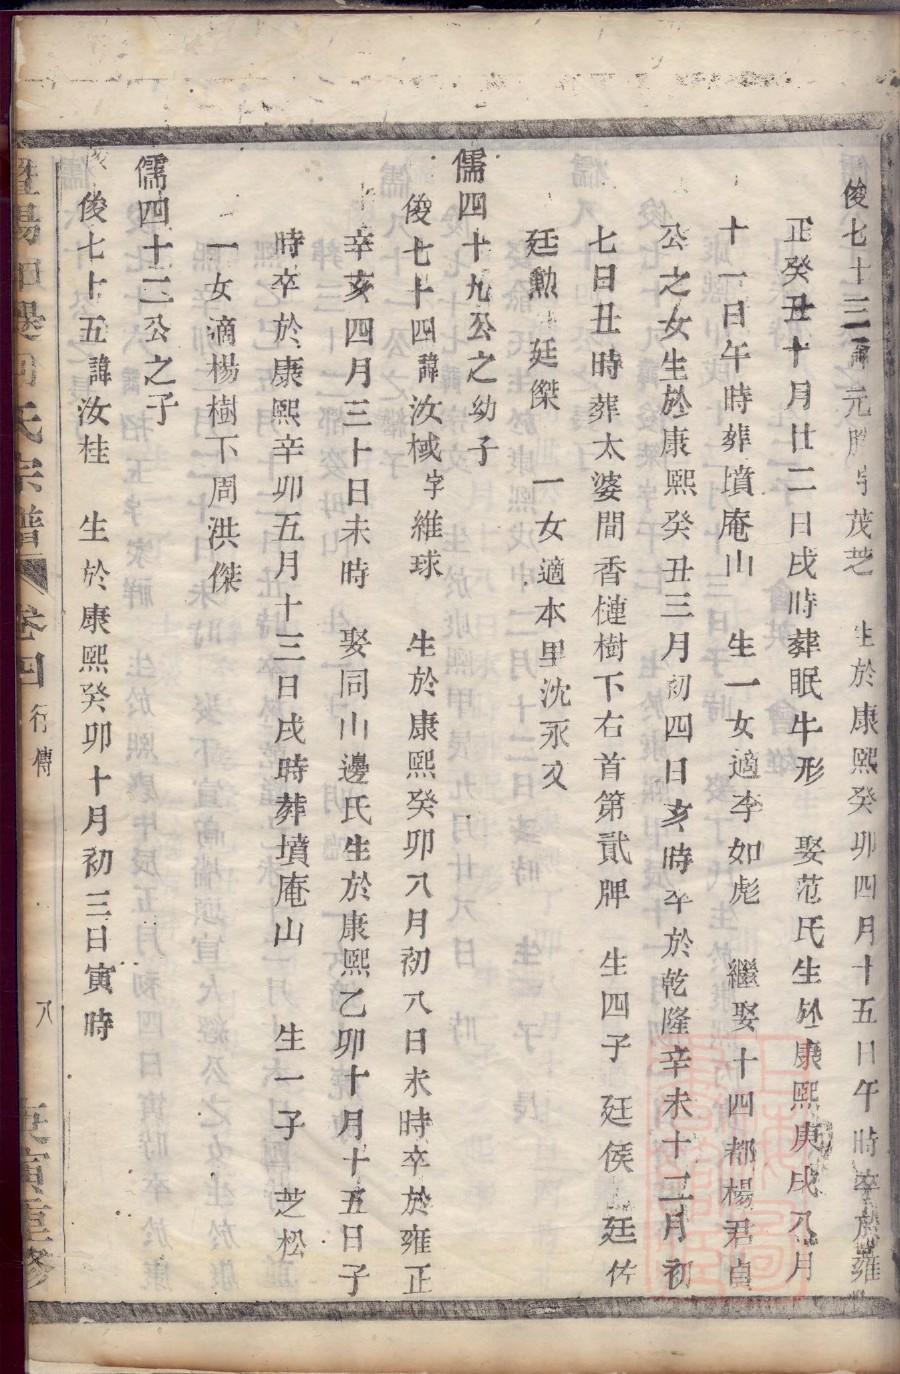 俊七十三諱元勝字茂芝　生於康熙癸卯四月十五日午時卒於雍
正癸丑十月廿二日戌時葬眠牛形　娶范氏生於康熙庚戌八月
十一日午時葬墳庵山　生一女適李如彪　繼娶十四都楊君貞
公之女生於康熙癸丑三月初四日亥時卒於乾隆辛未十二月初
七日丑時葬太婆間香槤樹下右首第貳牌　生四子　廷侯　廷佐
廷勲　廷傑　一女適本里沈永文
儒四十九公之幼子
俊七十四諱汝棫字維球　生於康熙癸卯八月初八日未時卒於雍正
辛亥四月三十日未時　娶同山邊氏生於康熙乙卯十月十五日子
時卒於康熙辛卯五月十三日戌時葬墳庵山　生一子　芝松
一女適楊樹下周洪傑
儒四十二公之子
俊七十五諱汝桂　生於康熙癸卯十月初三日寅時
暨陽　氏宗譜　卷四　行傳　八　寅重修